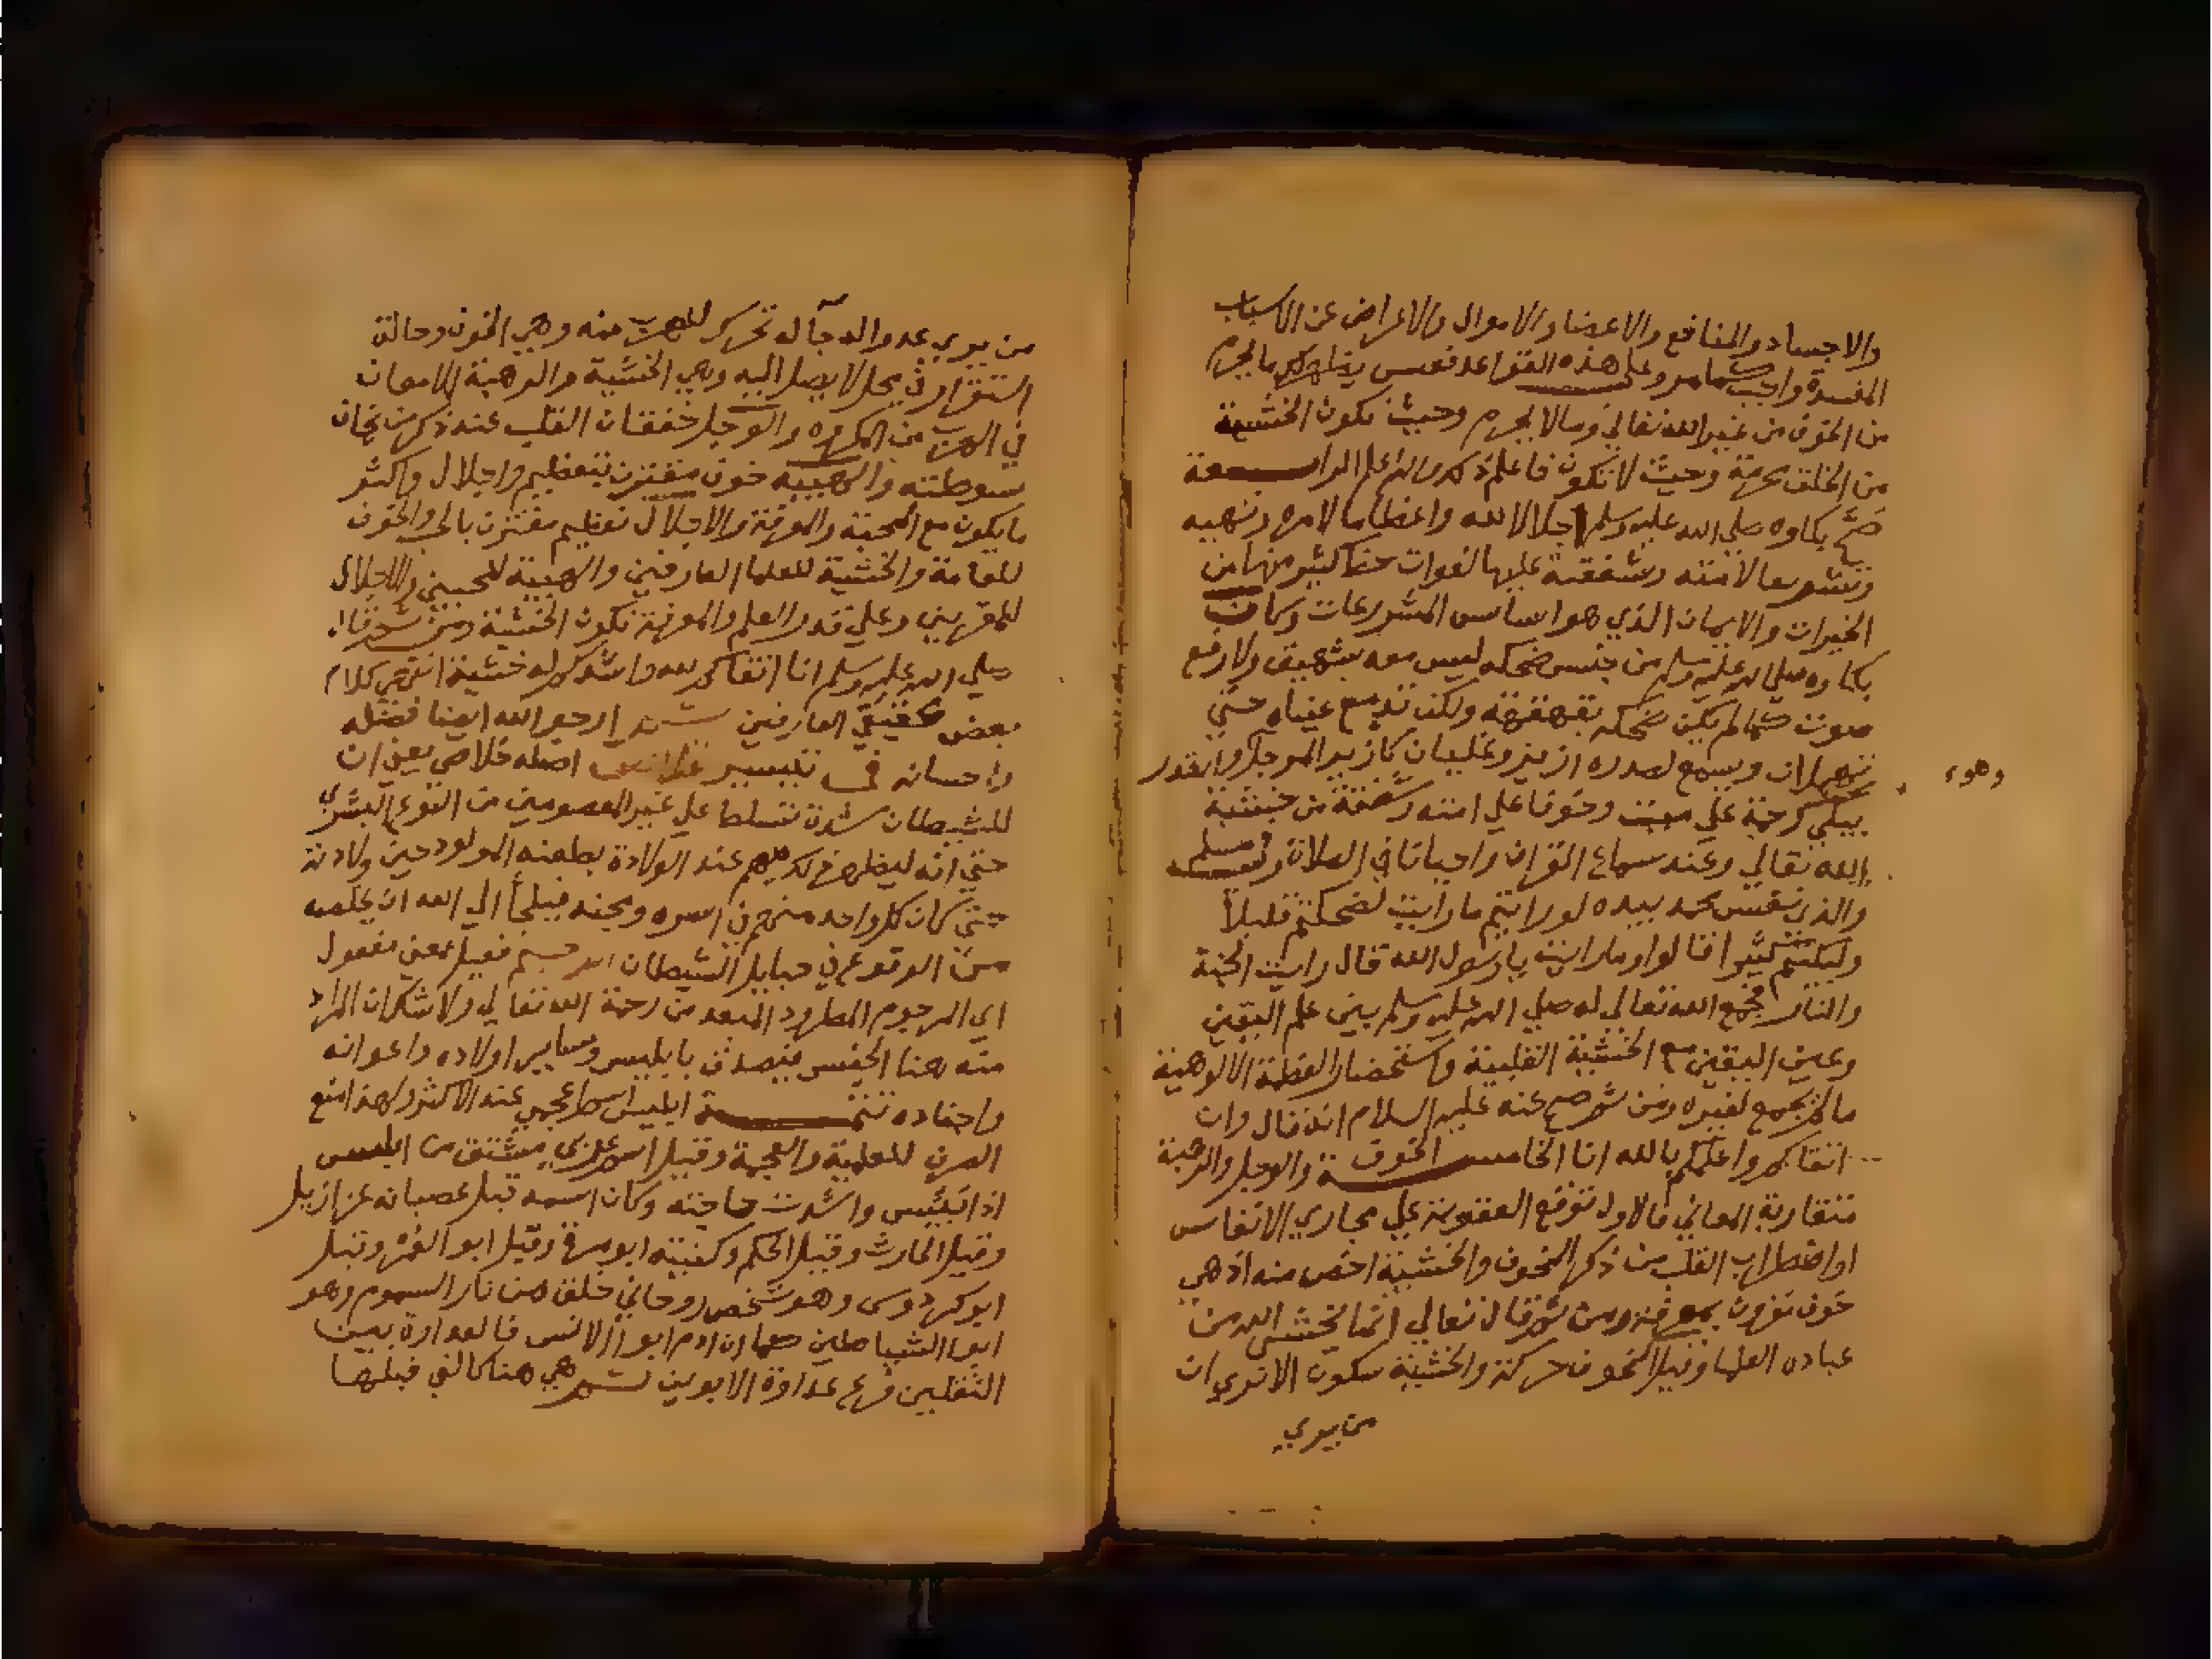 والاجساد والمنافع والاعضا والاموال والاعراض عن الاسباب
المفسدة واجب كما مر وعلى هذه القواعد فقس يظهر لك ما يحرم
من الخوف من غير الله تعالي وما لا يحرم وحيث تكون الخشية
من الخلق محرمة وحيث لا تكون فاعلم ذلك والله اعلم الرابعة
صح بكاوه صلي الله عليه وسلم اجلالا لله واعظاما لامره ونهيه
وتشريعا لامته وشفقة عليها لفوات حظ كثير منها من
الخيرات والايمان الذي هو اساس المشروعات وكان
بكاوه صلي الله عليه وسلم من جنس ضحكه ليس معه بشهيق ولا رفع
صوت كما لم يكن ضحكه بقهقهة ولكن تدمع عيناه حتي
تنهملان ويسمع لصدره ازيز وغليان كازيز المرجل والقدر
وهو
يبكي رحمة علي ميت وخوفا علي امته وشفقة من خشية
الله تعالي وعند سماع القران واحيانا في الصلاة وفي مسلم
والذي نفس محمد بيده لو رايتم ما رايت لضحكتم قليلا
ولبكيتم كثيرا قالوا وما رايت يا رسول الله قال رايت الجنة
والنار فجمع الله تعالي له صلي الله عليه وسلم بين علم اليقين
وعين اليقين مع الخشية القلبية واستحضار العظمة الالوهية
ما لم يجمع لغيره ومن ثم صح عنه عليه السلام انه قال وان
اتقاكم واعلمكم بالله انا الخامسة الخوف والوجل والرهبة
متقاربة المعاني فالاول توقع العقوبة علي مجاري الانفاس
او اضطراب القلب من ذكر المخوف والخشية اخص منه اذ هي
خوف مقرون بمعرفة ومن ثم قال تعالي انما يخشى الله من
عباده العلما وقيل الخوف حركة والخشية سكون الا تري ان
من يري
من يري عدوا له جآله تحرك للهرب منه وهي الخوف وحالة
استقراره في محل لا يصل اليه وهي الخشية والرهبة الامعان
في الهرب من المكروه والوجل خفقان القلب عند ذكر من يخاف
سوطته والهيبة خوف مقترن بتعظيم واجلال واكثر
ما يكون مع المحبة والمعرفة والاجلال تعظيم مقترن بالحب والخوف
للعامة والخشية للعلما العارفين والهيبة للمحبين والاجلال
للمقربين وعلي قدر العلم والمعرفة تكون الخشية ومن ثم قال
صلي الله عليه وسلم انا اتقاكم لله واشدكم له خشية انتهي كلام
بعض محققي العارفين ارجو الله ايضا فضله
واحسانه في تيسير اصله خلاص يعني ان
للشيطان شدة تسلط علي غير المعصومين من النوع البشري
حتي انه ليظهر ذلك منهم عند الولادة بطعنه المولود حين ولادته
حتي كان كل واحد منهم في اسره وسجنه فيلجأ الي الله ان يخلصه
من الوقوع في حبايل الشيطان الرجيم فعيل بمعني مفعول
اي المرجوم المطرود المبعد من رحمة الله تعالي ولا شك ان المراد
منه هنا الجنس فيصدق بابليس وساير اولاده واعوانه
واحفاده تتمة ابليس اسم اعجمي عند الاكثر ولهذا منع
الصرف للعلمية والعجمة وقيل اسم عربي مشتق من ابلس
اذا يئس واشتدت حاجته وكان اسمه قبل عصيانه عزازيل
وقيل الحارث وقيل الحكم وكنيته ابو مرة وقيل ابو الغمر وقيل
ابو كردوس وهو شخص روحاني خلق من نار السموم وهو
ابو الشياطين كما ان ادم ابو الانس فالعداوة بين
الثقلين فرع عداوة الابوين ثم هي هنا كالتي قبلها